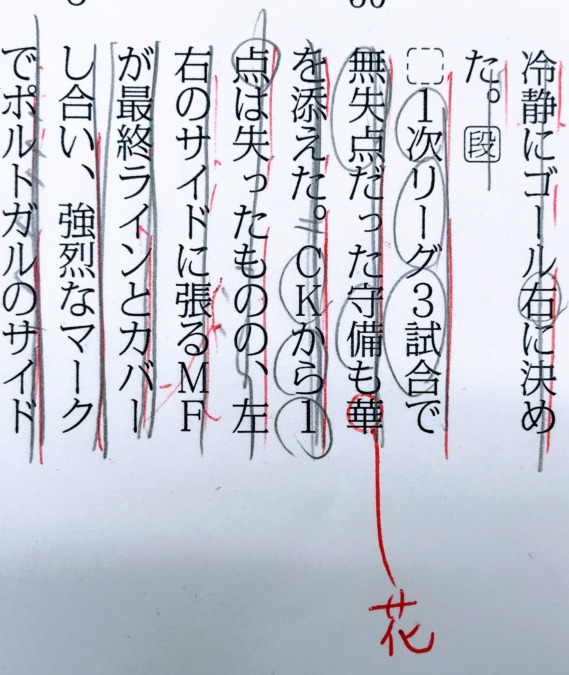 冷静にゴール右に決め
た。段
1次リーグ3試合で
無失点だった守備も華
を添えた。CKから1
点は失ったものの、左
右のサイドに張るMF
が最終ラインとカバー
し合い、強烈なマーク
でポルトガルのサイド
花